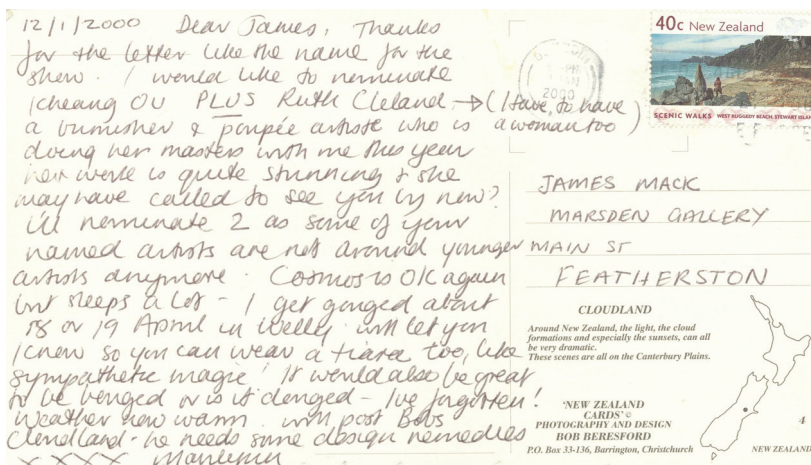 12/1/2000 Dear James, Thanks
for the letter like the name for the
show. I would like to nominate
Kheang OU PLUS Ruth Cleland → (I have, to have
a burnisher & poupée artiste who is a woman too)
doing her masters with me this year
her work is quite stunning & she
may have called to see you by now?
I'll nominate 2 as some of your
named artists are not around younger
artists anymore. Cosmos is OK again
but sleeps a lot - I get gonged about
18 or 19 April in Welly will let you
know so you can wear a tiara too, like
sympathetic magic! It would also be great
to be benged or is it denged - I've forgotten!
Weather now warm. will post Bobs
Clendland - he needs some design remedies
x x x x
40c New Zealand
2000
SCENIC WALKS WEST RUGGEDY BEACH, STEWART ISLAND
JAMES MACK
MARSDEN GALLERY
MAIN ST
FEATHERSTON
CLOUDLAND
Around New Zealand, the light, the cloud
formations and especially the sunsets, can all
be very dramatic.
These scenes are all on the Canterbury Plains.
'NEW ZEALAND
CARDS' ©
PHOTOGRAPHY AND DESIGN
BOB BERESFORD
P.O. Box 33-136, Barrington, Christchurch
4
NEW ZEALAND